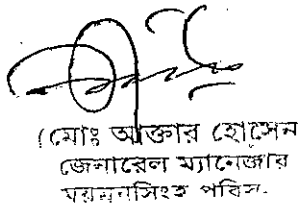 (মোঃ আক্তার হোসেন
জেনারেল ম্যানেজার
ময়মনসিংহ পবিস-